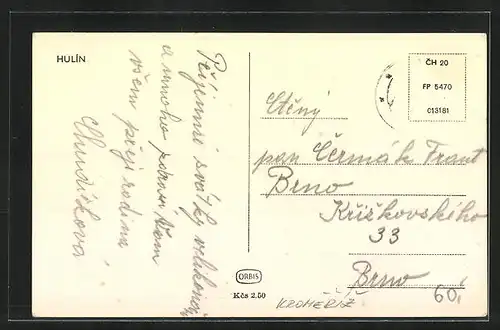 HULÍN
Příjemné svátky velikonoční
a mnoho zdraví Vám
všem přeje rodina
Chudíčkova
ČH 20
FP 5470
C13181
Ctěný
pan Čermák Frant
Brno
Křížkovského
33
Brno
ORBIS
Kčs 2,50
KROMĚŘÍŽ
60,